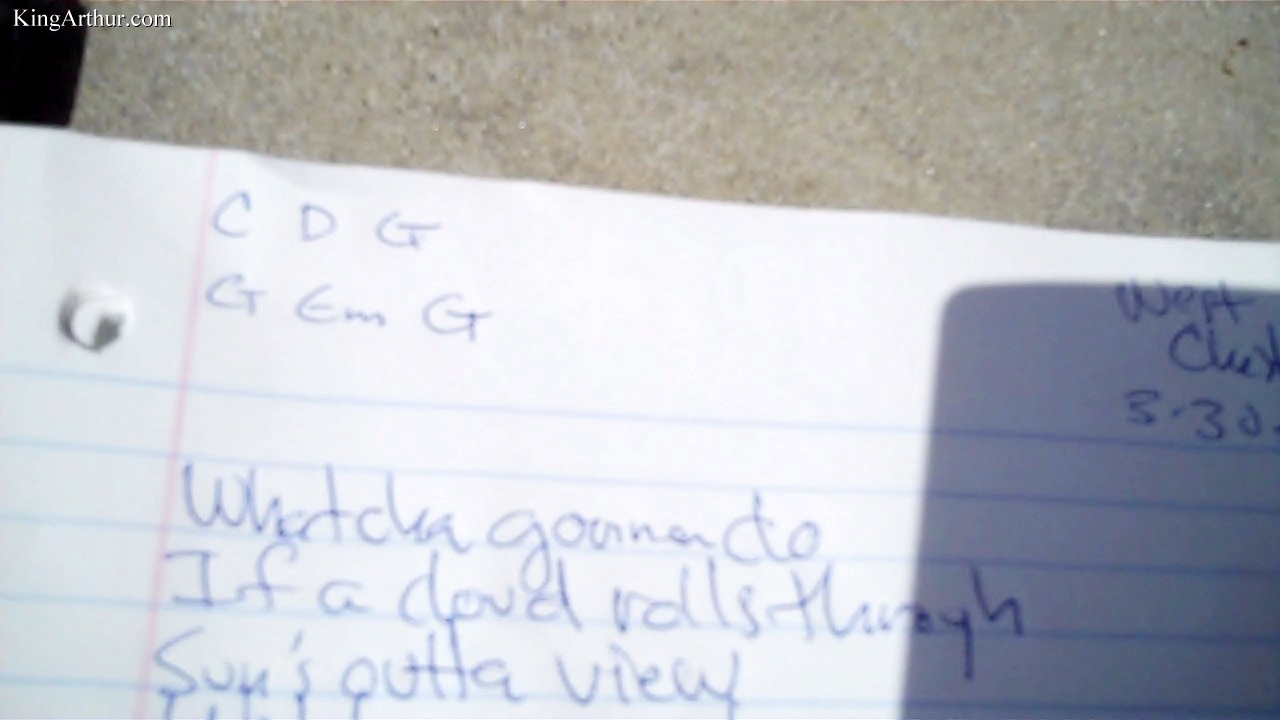 KingArthur.com
C D G
G Em G
West
3-30
Whatcha gonna do
If a cloud rolls through
Sun's outta view